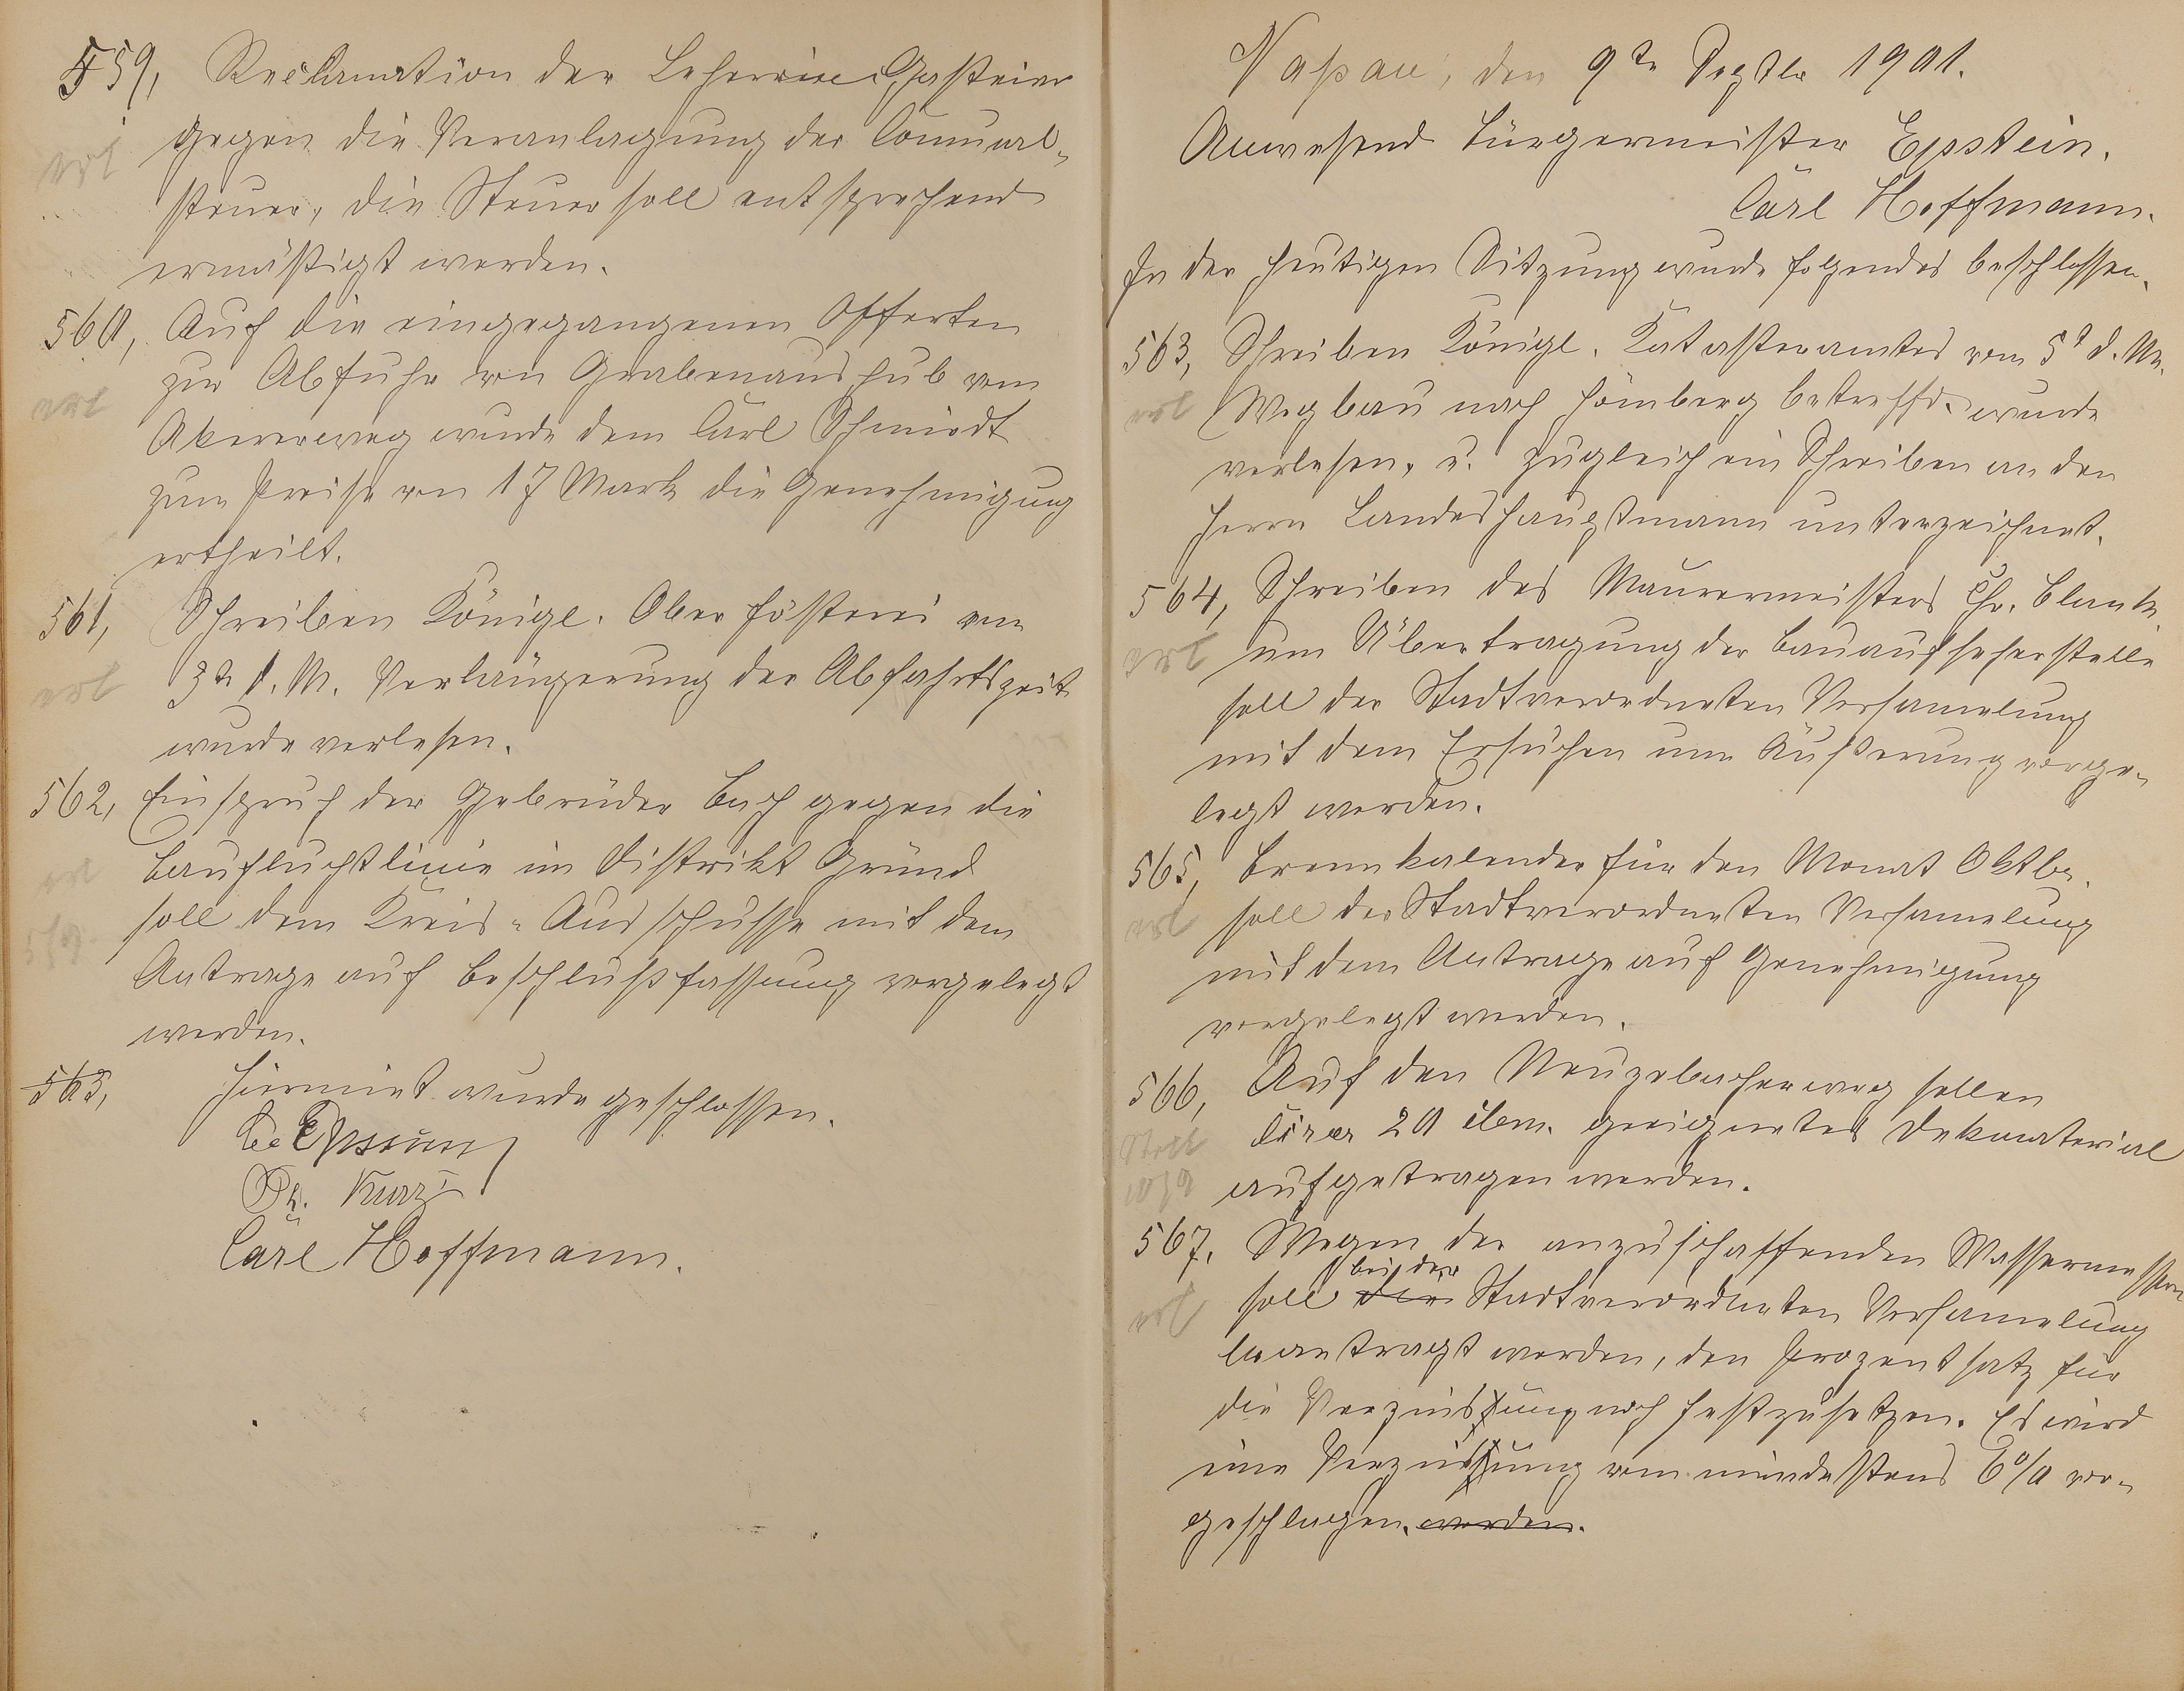 559, Reclamation der Leherrin Gasteier
erl
gegen die Veranlagung der Communal-
steuer, die Steuer soll entsprechend
ermäßigt werden.
560, Auf die eingegangenen Offerten
zur Abfuhr von Grabenaushub vom
erl
Akererweg wurde dem Carl Schmidt
zum Preise von 17 Mark die Genehmigung
ertheilt.
561, Schreiben Königl. Oberfösterei vom
3tn d. M. Verlängerung der Abfahrtszeit
erl
wurde verlesen.
562, Einspruch der Gebrüder Buch gegen die
Baufluchtlinie im Distrikt Gründ
erl
soll dem Kreis-Ausschusse mit dem
Antrage auf Beschlußfassung vorgelegt
werden.
563, Hiermiet wurde geschlossen.
Carl Hoffmann.
Naßau, den 9tn Septbr 1901.
Anwesend Bürgermeister Epstein.
Carl Hoffmann.
In der heutigen Sitzung wurde folgendes beschlossen.
563, Schreiben Königl. Katasteramtes vom 5t d. M.
erl Wegbau nach Hömberg betreffd. wurde
verlesen, u. zugleich ein Schreiben an den
Herrn Landeshauptmann unterzeichnet.
564, Schreiben des Maurermeisters Chr. Blank
erl um Übertragung der Bauaufseherstelle
soll der Stadtverordneten Versamelung
mit dem Ersuchen um Äußerung vorge-
legt werden.
565, Brennkalender für den Monat Oktbr.
erl soll der Stadtverordneten Versamelung
mit dem Antrage auf Genehmigung
vorgelegt werden.
566, Auf den Neuzebacherweg sollen
Circa 20 cbm. geeignetes Dekmaterial
aufgetragen werden.
567, Wegen der anzuschaffenden Wassermesser
bei der
erl soll die Stadtverordneten Versamelung
beantragt werden, den Prozentsatz für
die Verzinsung noch festzusetzen. Es wird
eine Verzinsung von mindestens 6% vor-
geschlagen. werden.